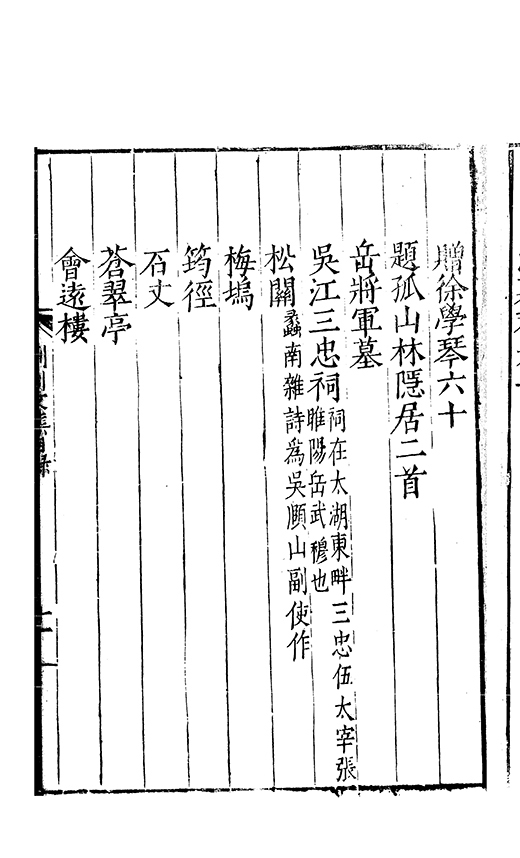 贈徐學琴六十
題孤山林隱居二首
岳將軍墓
吳江三忠祠祠在太湖東畔三忠伍太宰張
睢陽岳武穆也
松關蠡南雜詩為吳頋山副使作
梅塢
筠徑
石丈
蒼翠亭
會遠樓